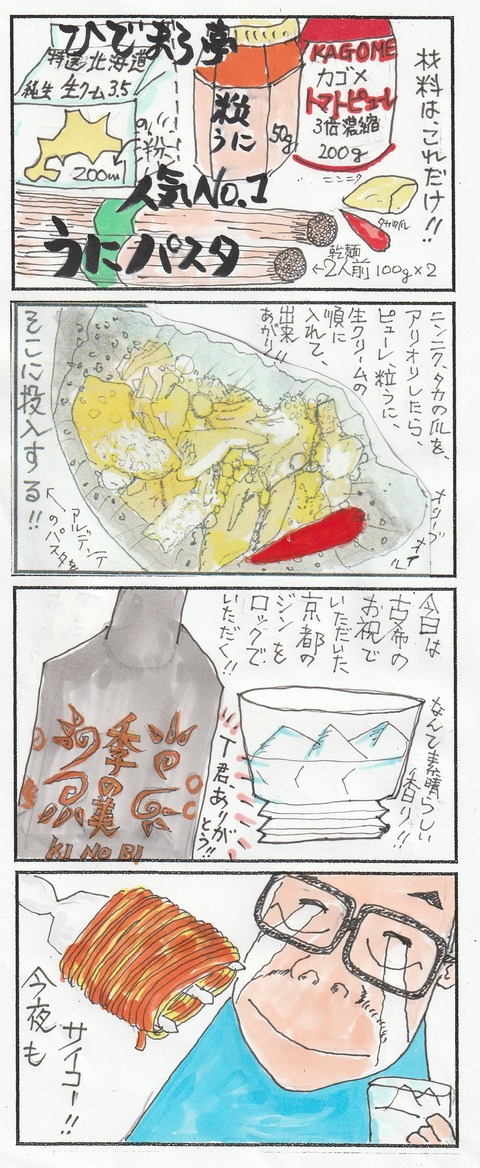 ひでまろ夢の
人気No.1
うにパスタ
特選北海道
純生 生クリーム35
200ml
粒うに
50g
KAGOME
カゴメ
トマトピューレ
3倍濃縮
200g
材料は、これだけ!!
ニンニク
タカの爪
乾麺
←2人前 100g×2
ニンニク、タカの爪を、
アリオリしたら、
ピューレ、粒うに、
生クリームの
順に
入れて、
出来
あがり!!
オリーブオイル
そこに投入する!!
アルデンテ
のパスタを
今日は
古希の
お祝で
いただいた
京都の
ジンを
ロックで
いただく!!
なんて素晴らしい
香り!!
季の美
KI NO BI
T君、ありが
とう!!
今夜も
サイコー!!